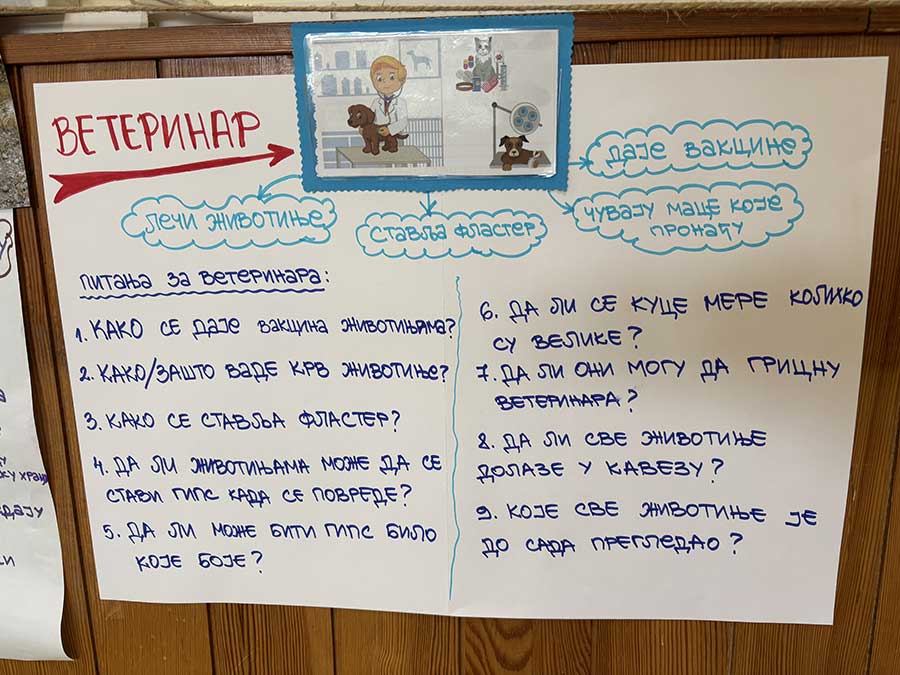 ВЕТЕРИНАР
ДАЈЕ ВАКЦИНЕ
ЛЕЧИ ЖИВОТИЊЕ
СТАВЉА ФЛАСТЕР
ЧУВАЈУ МАЦЕ КОЈЕ
ПРОНАЂУ
ПИТАЊА ЗА ВЕТЕРИНАРА:
1. КАКО СЕ ДАЈЕ ВАКЦИНА ЖИВОТИЊАМА?
2. КАКО/ЗАШТО ВАДЕ КРВ ЖИВОТИЊЕ?
3. КАКО СЕ СТАВЉА ФЛАСТЕР?
4. ДА ЛИ ЖИВОТИЊАМА МОЖЕ ДА СЕ
СТАВИ ГИПС КАДА СЕ ПОВРЕДЕ?
5. ДА ЛИ МОЖЕ БИТИ ГИПС БИЛО
КОЈЕ БОЈЕ?
6. ДА ЛИ СЕ КУЦЕ МЕРЕ КОЛИКО
СУ ВЕЛИКЕ?
7. ДА ЛИ ОНИ МОГУ ДА ГРИЦНУ
ВЕТЕРИНАРА?
8. ДА ЛИ СВЕ ЖИВОТИЊЕ
ДОЛАЗЕ У КАВЕЗУ?
9. КОЈЕ СВЕ ЖИВОТИЊЕ ЈЕ
ДО САДА ПРЕГЛЕДАО?